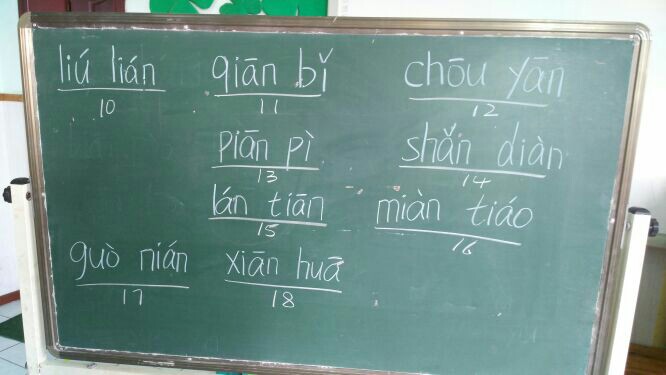 liú lián qiān bǐ chōu yān
10 11 12
piān pì shǎn diàn
13 14
lán tiān miàn tiáo
15 16
guò nián xiān huā
17 18